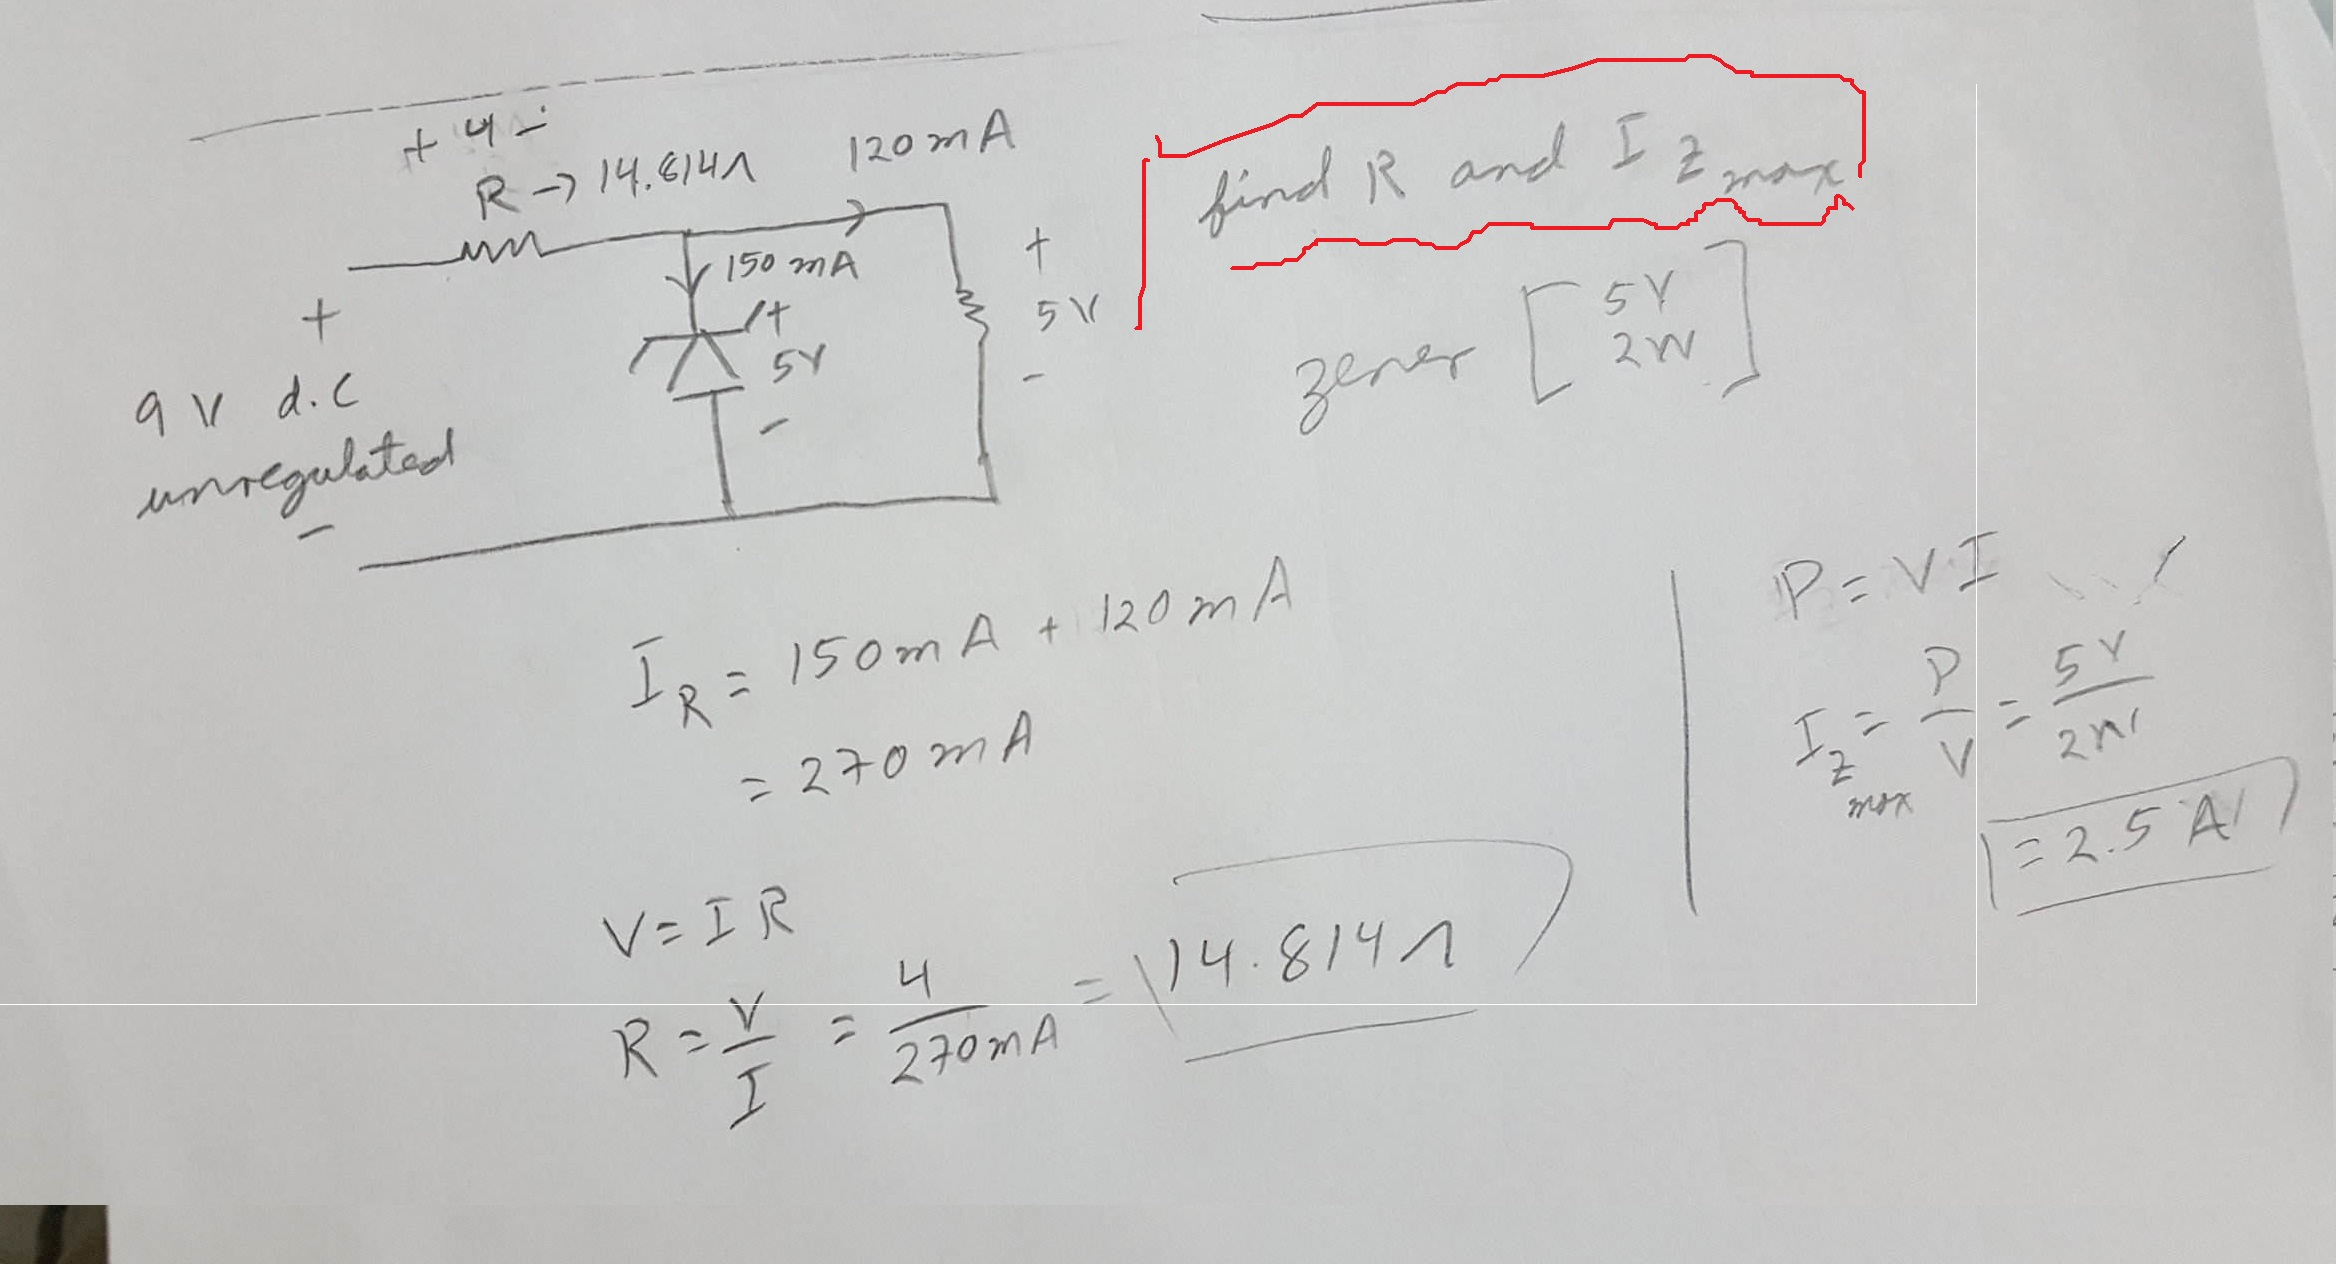 + 4 -
R → 14.814Ω
120 mA
150 mA
+
5V
-
+
5V
-
+
9 V d.c
unregulated
-
find R and I Z max
zener [ 5V
2W ]
I R = 150 mA + 120 mA
= 270 mA
V = I R
R = V/I = 4/270mA = 14.814Ω
P = V I
I Z max = P/V = 5V/2W
= 2.5 A